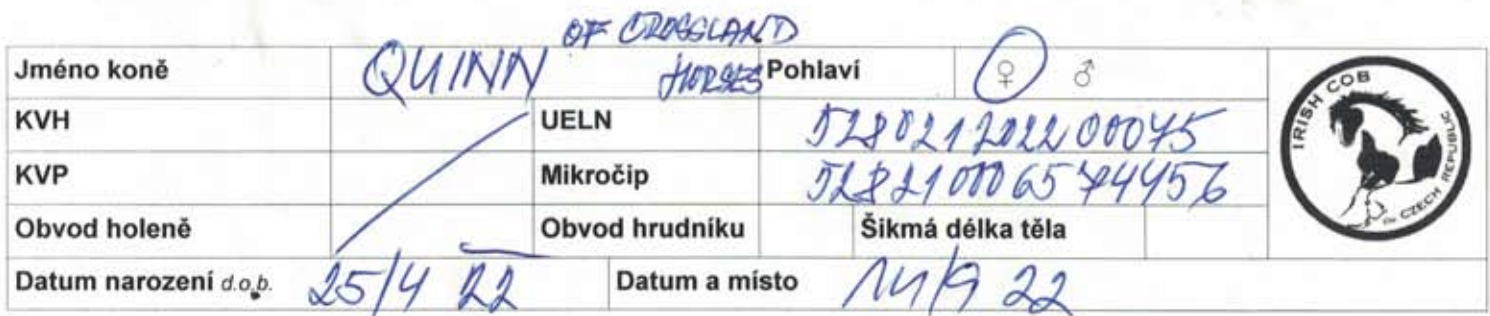 OF CROSSLAND
Jméno koně QUINN HORSES Pohlaví ♀ ♂
KVH UELN 528021202200045
KVP Mikročip 528210006574456
Obvod holeně Obvod hrudníku Šikmá délka těla
Datum narození d.o.b. 25/4 22 Datum a místo 14/9 22
IRISH COB
the CZECH REPUBLIC